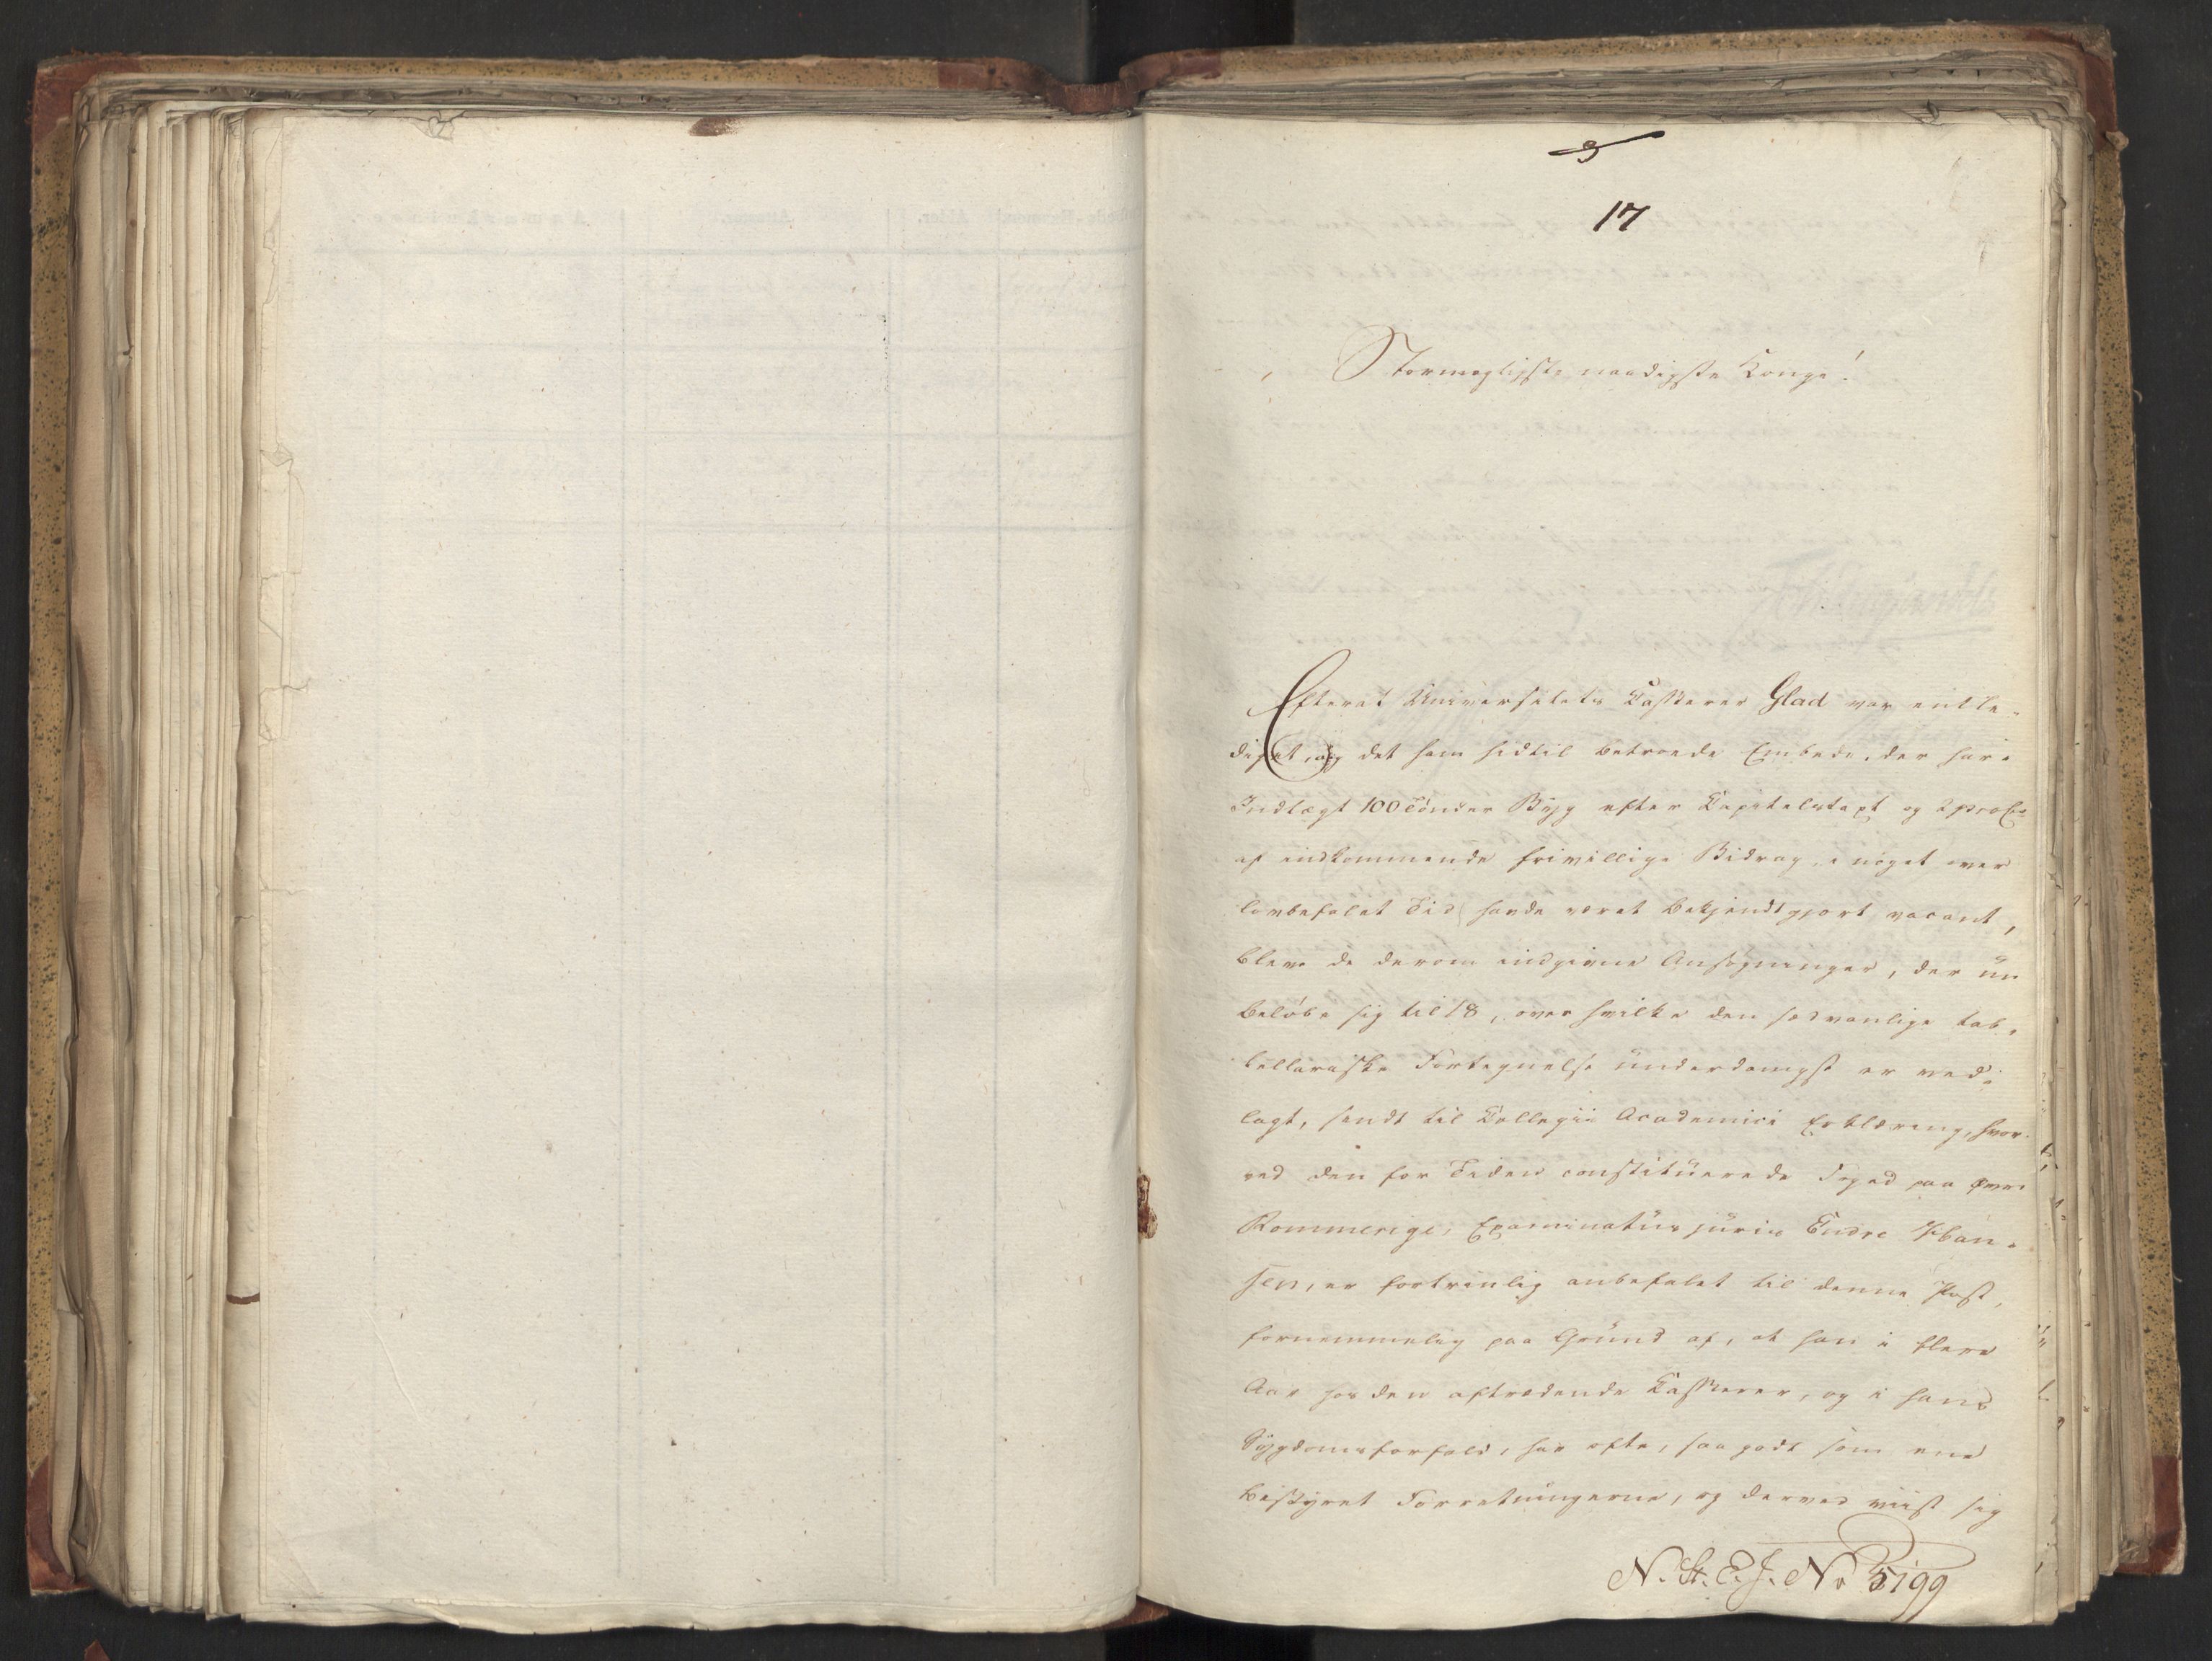 9
17
Stormægtigste naadigste Konge!
Efterat Universitets Casserer Glad var entle-
diget, og det ham hidtil betroede Embede, der har i
Indtægt 100 Tönder Byg efter Capitelstaxt og 2 proCto
af indkommende frivillige Bidrag, i noget over
lovbefalet Tid havde været bekjendtgjort vacant,
bleve de derom indgivne Ansögninger, der
belöbe sig til 18, over hvilke den sædvanlige tab-
bellariske Fortegnelse underdanigst er ved-
lagt, sendt til Collegii Academici Erklæring, hvor-
ved den for Tiden constituerede Foged paa Øvre
Rommerige, Examinatus juris Endre Ihan-
sen, er fortrinlig anbefalet til denne Post,
fornemmelig paa Grund af, at han i flere
Aar hos den aftrædende Casserer, og i hans
Sygdomsforfald, har ofte, saa godt som ene
bestyret Forretningerne, og derved viist sig
N. St. E. J. No 5199